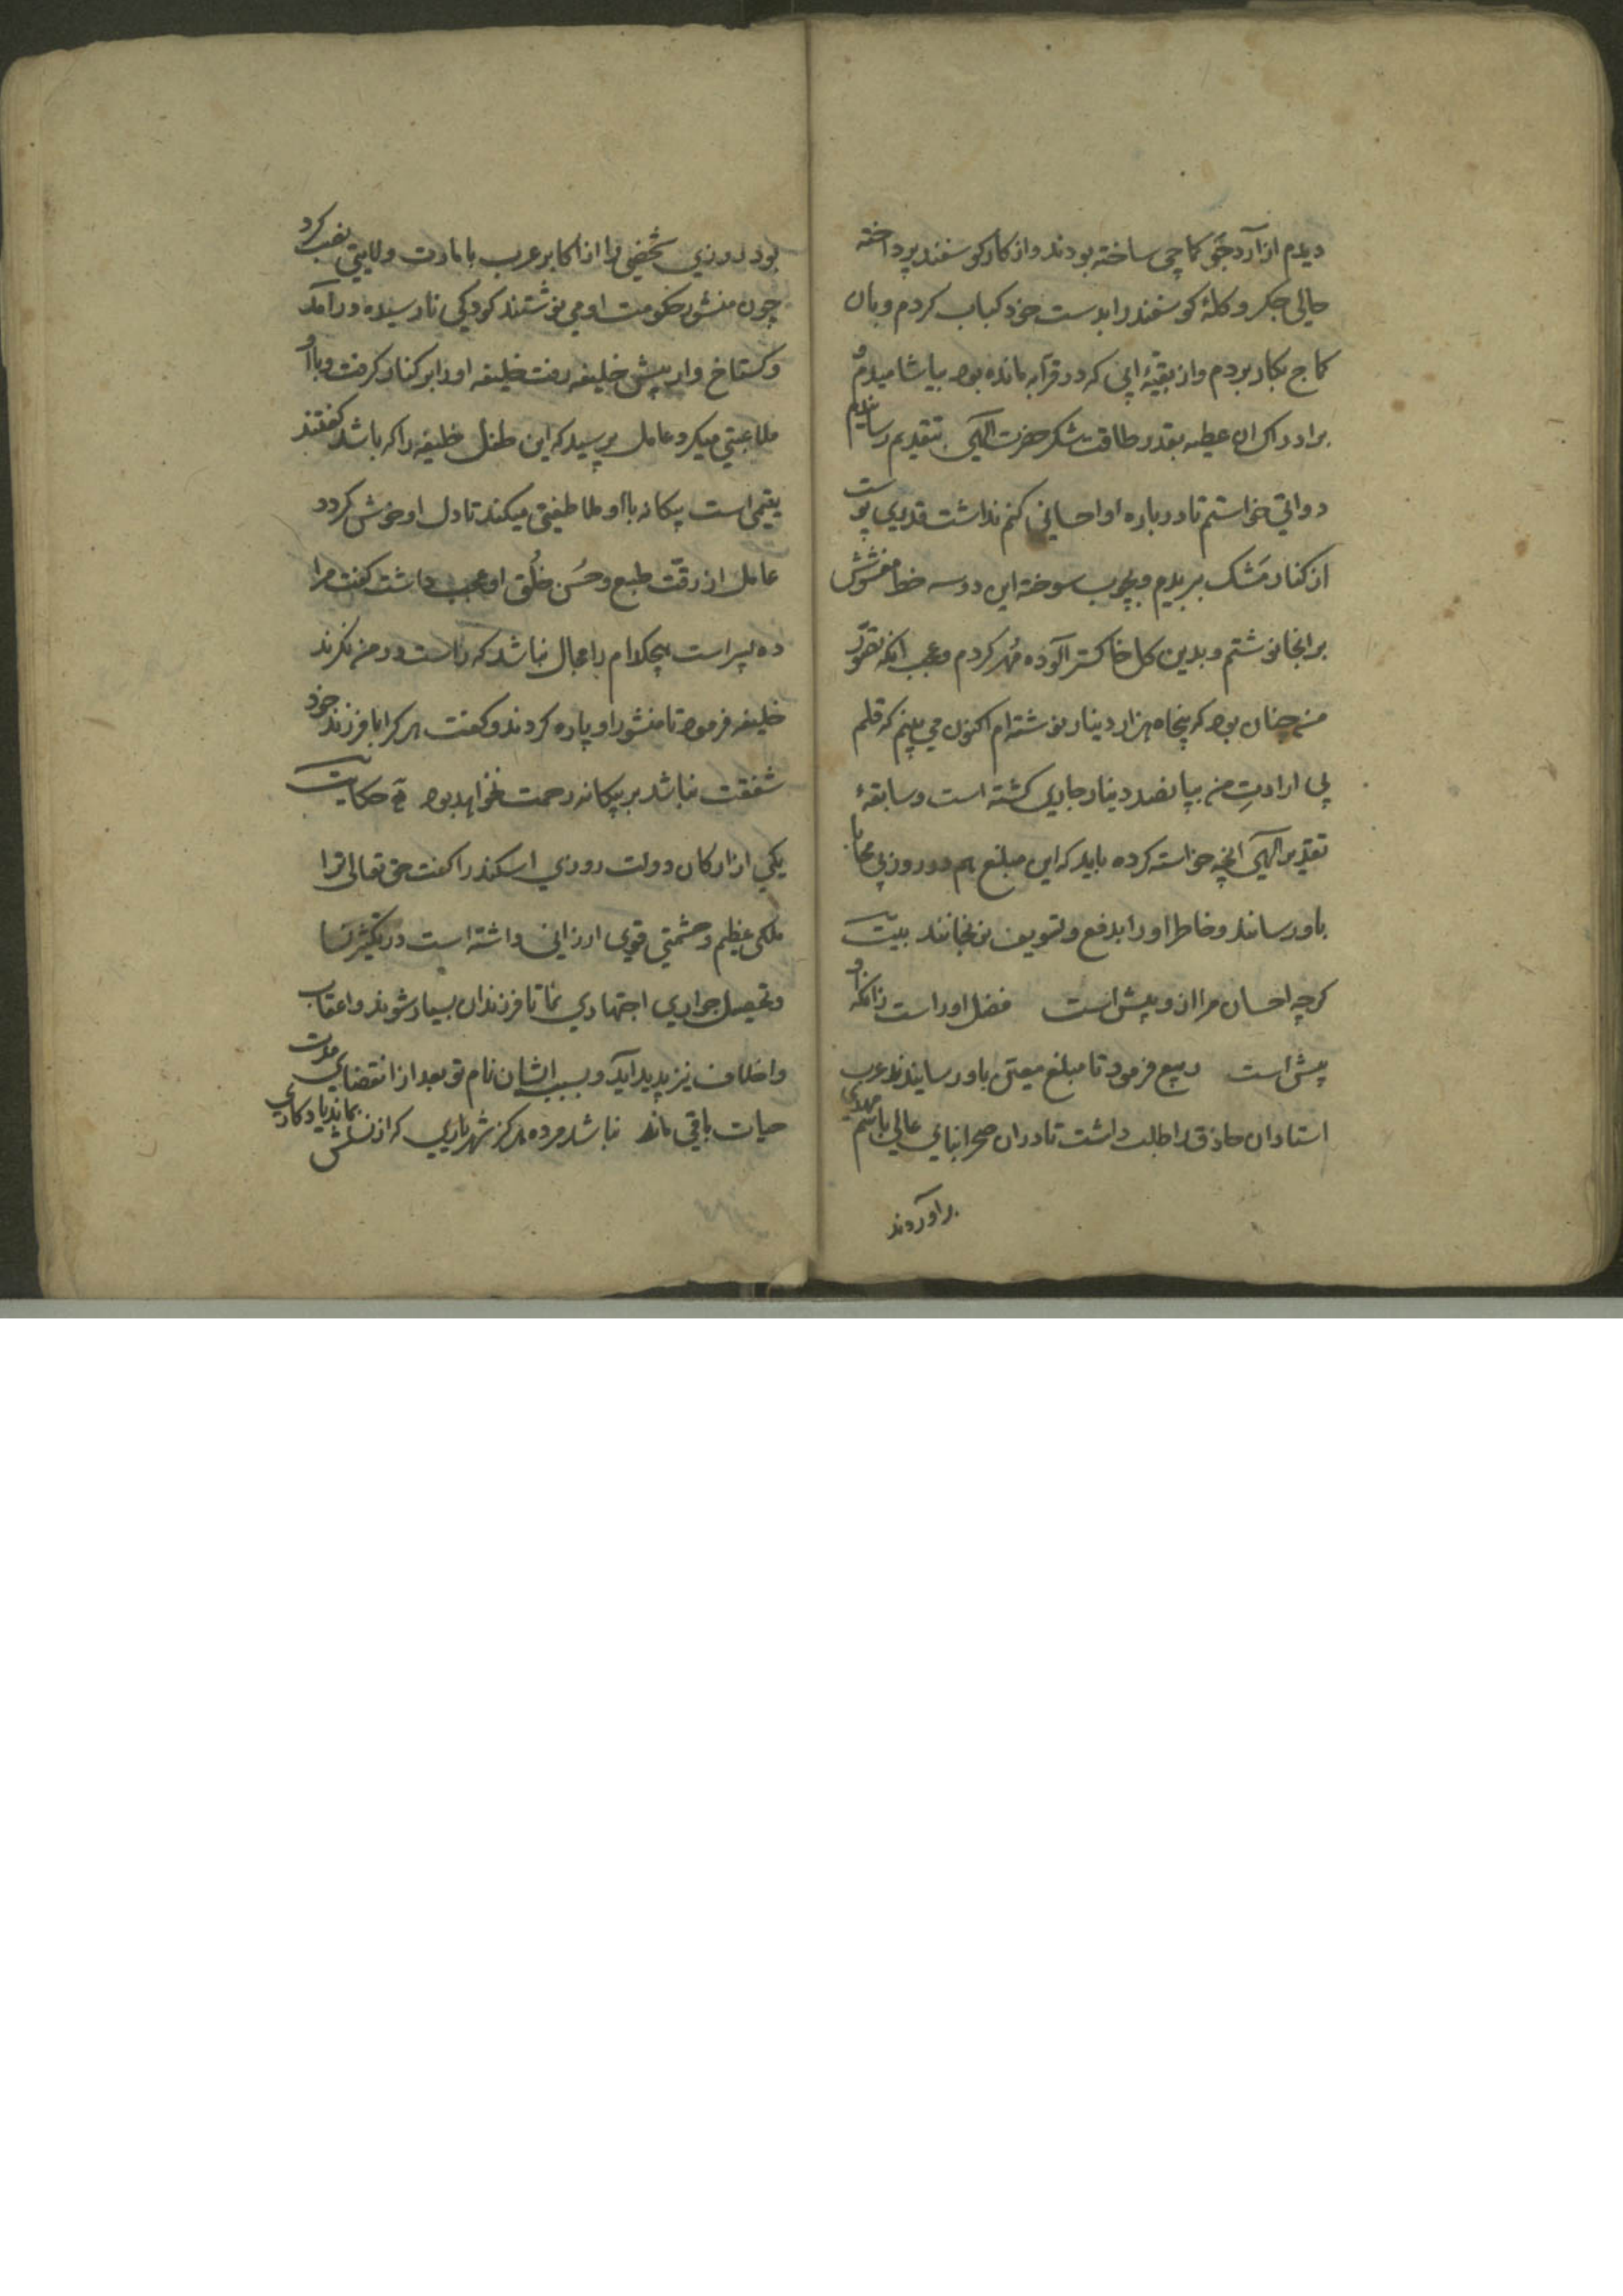 دیدم از آرد جَو کماچی ساخته بودند و از کار کوسفند پرداخته
حالی جکر و کلهٔ کوسفند را بدست خود کباب کردم و بان
کماج بکار بردم و از بقیهٔ ابی که در قرآبه مانده بود بیاشامیدم و
بر ادراک ان عطیه بقدر طاقت شکر حضرت الهی بتقدیم رسانیدم
دواتی خواستم تا در باره او احسانی کنم نداشت قدری پوست
از کنار مَشک ببریدم و بچوب سوخته این دو سه خط مغشوش
بر انجا نوشتم و بدین کل خاکستر آلوده مُهر کردم و عجب انکه تصوّر
من چنان بود که پنجاه هزار دینار نوشته ام اکنون می بینم که قلم
بی ارادتِ من بپانصد دینار جاری کشته است و سابقهٔ
تقدیر الهی انچه خواسته کرده باید که این مبلغ هم در روز بی محابا
باو رسانند و خاطر او را بدفع و تسویف نرنجانند بیت
کرچه احسان مرا ازو بیش است فضل او راست زانکه او
پیش است ربیع فرمود تا مبلغ معیّن باو رسانیدند عرب
استادان حاذق را طلب داشت تا دران صحرا بنای عالی باسم مهدی
براوردند
بود روزی شخصی را از اکابر عرب بامارت ولایتی نصب کرد
چون منشور حکومت او می نوشتند کودکی نارسیده درآمد
و کستاخ وار پیش خلیفه رفت خلیفه او را بر کنار کرفت و با او
ملاعبتی میکرد عامل پرسید که این طفل خلیفه را که باشد کفتند
یتیمی است بیکانه با او ملاطفتی میکند تا دل او خوش کردد
عامل از رقّت طبع و حُسن خُلق او عجب داشت کفت مرا
ده پسر است هیچکدام را مجال نباشد که راست در من نکرند
خلیفه فرمود تا منشور او پاره کردند و کفت هر کرا با فرزند خود
شفقت نباشد بر بیکانه رحمت نخواهد بود حکایت
یکی از ارکان دولت روزی اسکندر را کفت حق تعالی ترا
ملکی عظیم و حشمتی قوی ارزانی داشته است در تکثیر نسا
و تحصیل جواری اجتهادی نما تا فرزندان بسیار شوند و اعقاب
و اخلاف نیز پدید آید و بسبب ایشان نام تو بعد از انقضای مدت
حیات باقی ماند نباشد مرده هرکز شهریاری که از نسلش بماند یادکاری